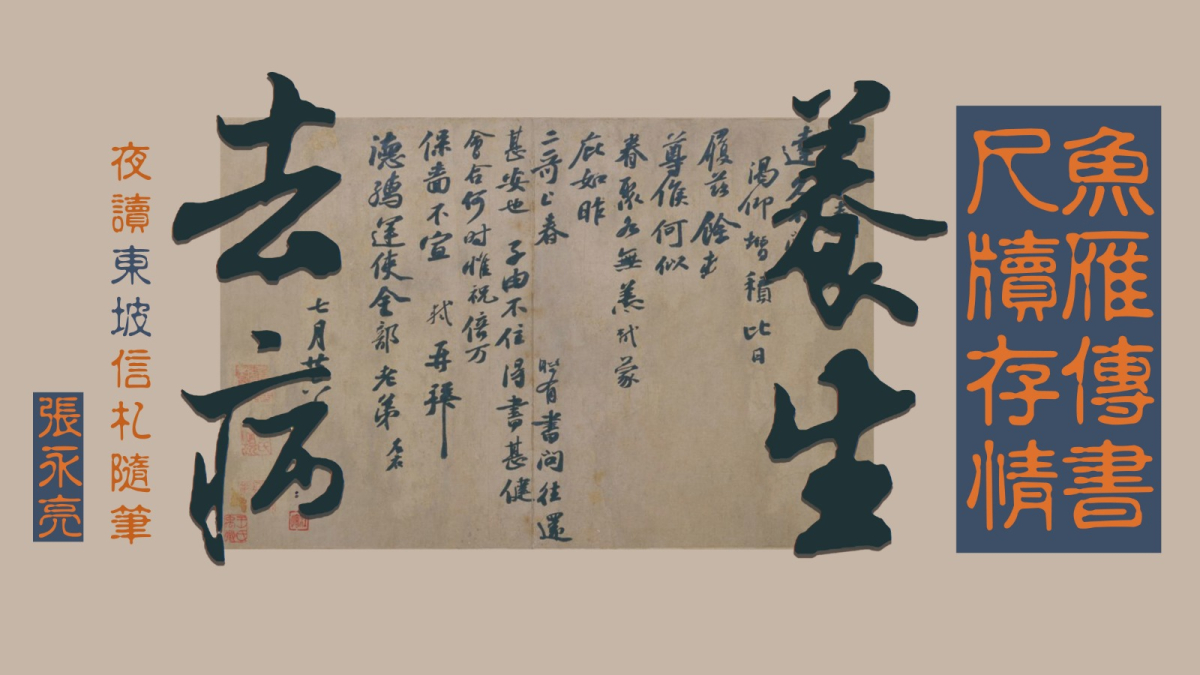 魚雁傳書
尺牘存情
養生
去病
違
渴仰增積 比日
履茲
尊候何似
眷聚各無恙 軾蒙
庇如昨
二哥上春 有書問往還
甚安也 子由不住得書甚健
會合何時惟祝倍万
保嗇不宣 軾再拜
德孺運使金部老弟 左右
七月廿
夜讀東坡信札隨筆
張永亮